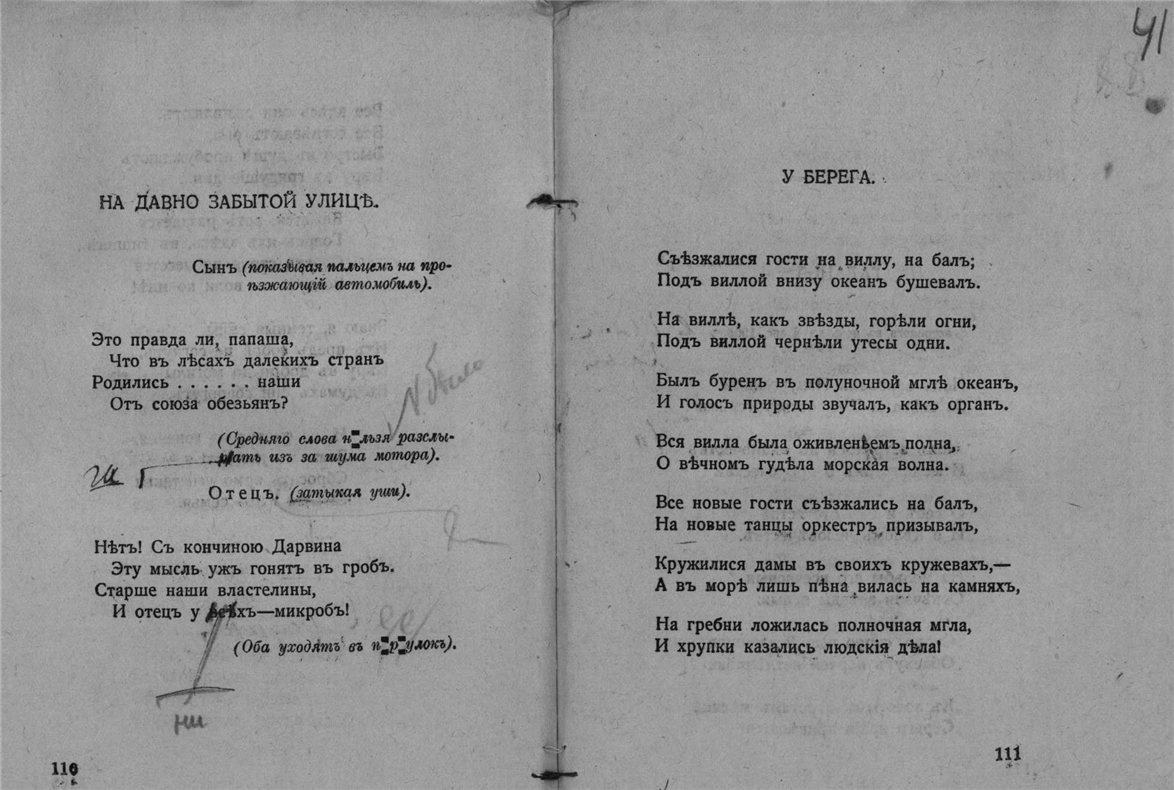 НА ДАВНО ЗАБЫТОЙ УЛИЦѢ.
Сынъ (показывая пальцемъ на про-
ѣзжающій автомобиль).
Это правда ли, папаша,
Что въ лѣсахъ далекихъ странъ
Родились . . . . . . наши
Отъ союза обезьянъ?
(Средняго слова н льзя разслы-
шать изъ за шума мотора).
Отецъ. (затыкая уши).
Нѣтъ! Съ кончиною Дарвина
Эту мысль ужъ гонятъ въ гробъ.
Старше наши властелины,
И отецъ у всѣхъ—микробъ!
ни
(Оба уходятъ въ п р улокъ).
110
41
У БЕРЕГА.
Съѣзжалися гости на виллу, на балъ;
Подъ виллой внизу океанъ бушевалъ.
На виллѣ, какъ звѣзды, горѣли огни,
Подъ виллой чернѣли утесы одни.
Былъ буренъ въ полуночной мглѣ океанъ,
И голосъ природы звучалъ, какъ органъ.
Вся вилла была оживленьемъ полна,
О вѣчномъ гудѣла морская волна.
Все новые гости съѣзжались на балъ,
На новые танцы оркестръ призывалъ,
Кружилися дамы въ своихъ кружевахъ,—
А въ морѣ лишь пѣна вилась на камняхъ,
На гребни ложилась полночная мгла,
И хрупки казались людскія дѣла!
111